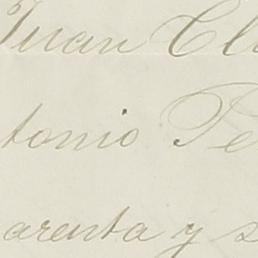 Juan Cl
tonio Pe
arenta y s